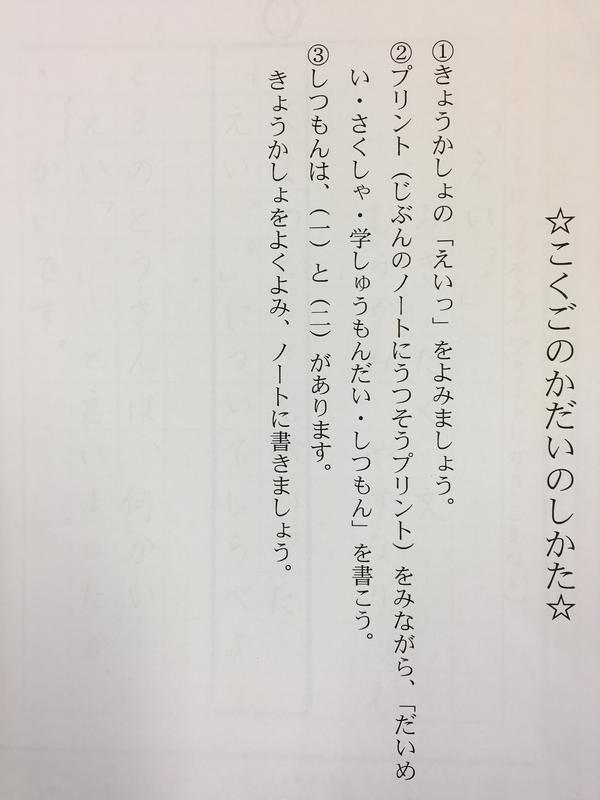 ☆こくごのかだいのしかた☆
①きょうかしょの「えいっ」をよみましょう。
②プリント（じぶんのノートにうつそうプリント）をみながら、「だいめ
い・さくしゃ・学しゅうもんだい・しつもん」を書こう。
③しつもんは、（一）と（二）があります。
きょうかしょをよくよみ、ノートに書きましょう。